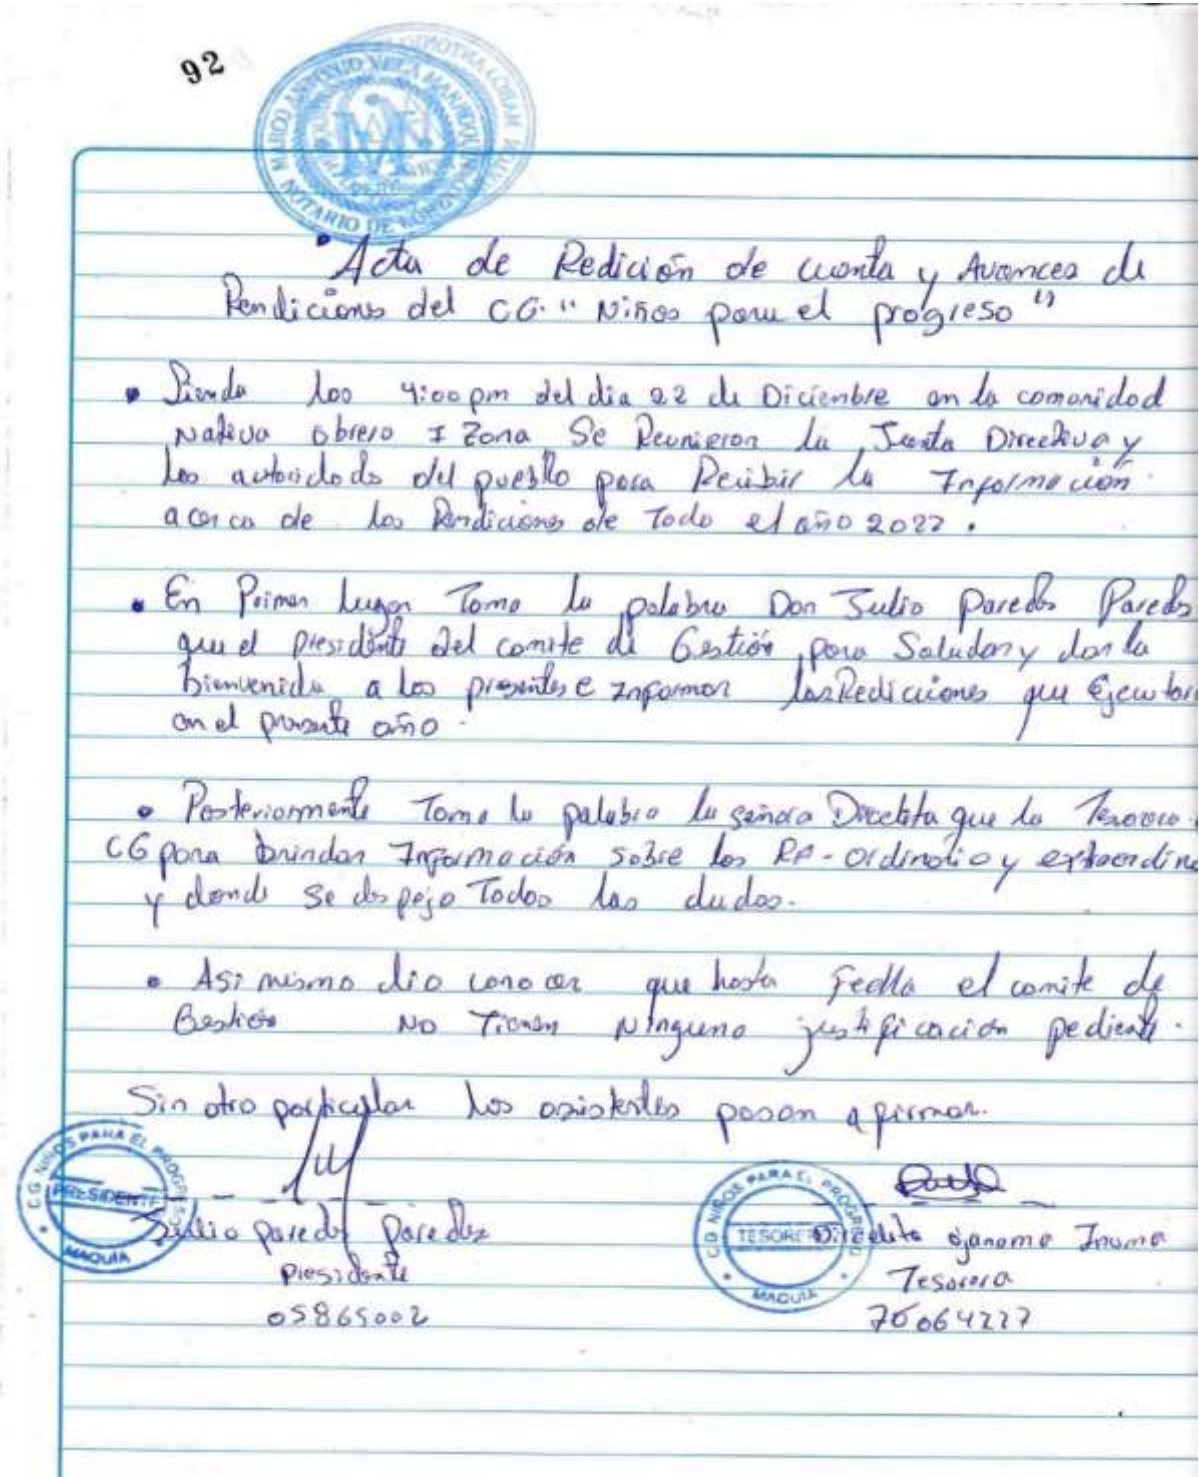 92
MARCO ANTONIO VELA MANRIQUE
NOTARIO DE LORETO
Acta de Redición de cuenta y Avances de
Rendiciones del CG. "Niños para el progreso"
• Siendo las 4:00 pm del dia 22 de Diciembre en la comunidad
Nativa Obrero I Zona Se Reunieron la Junta Directiva y
las autoridads del pueblo para Recibir la Información
acerca de las Rendiciones de Todo el año 2022.
• En Primer Lugar Tomo la palabra Don Julio Paredes Paredes
que el presidente del comite de Gestión, para Saludar y dar la
bienvenida a los presentes e informar las Rediciciones que Ejecutar
en el presente año.
• Posteriormente Tomo la palabra la señora que la Tesorera
CG para brindar Información sobre los RP-ordinario y extraordina
y donde se despejo Todas las dudas.
• Asi mismo dio conocer que hasta Fecha el comite de
Gestión NO Tienen Ninguna justificación pediente.
Sin otro particular Los asistentes pasan a firmar.
C G NIÑOS PARA EL PROGRESO
PRESIDENTE
MAQUIA
Julio Paredes Paredes
Presidente
05865002
C G NIÑOS PARA EL PROGRESO
TESORERO
MAQUIA
Inuma
Tesorera